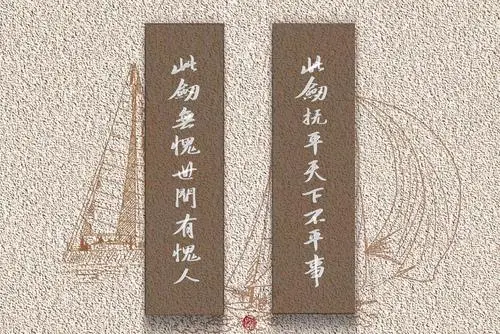 此劔抚平天下不平事
此劔無愧世間有愧人